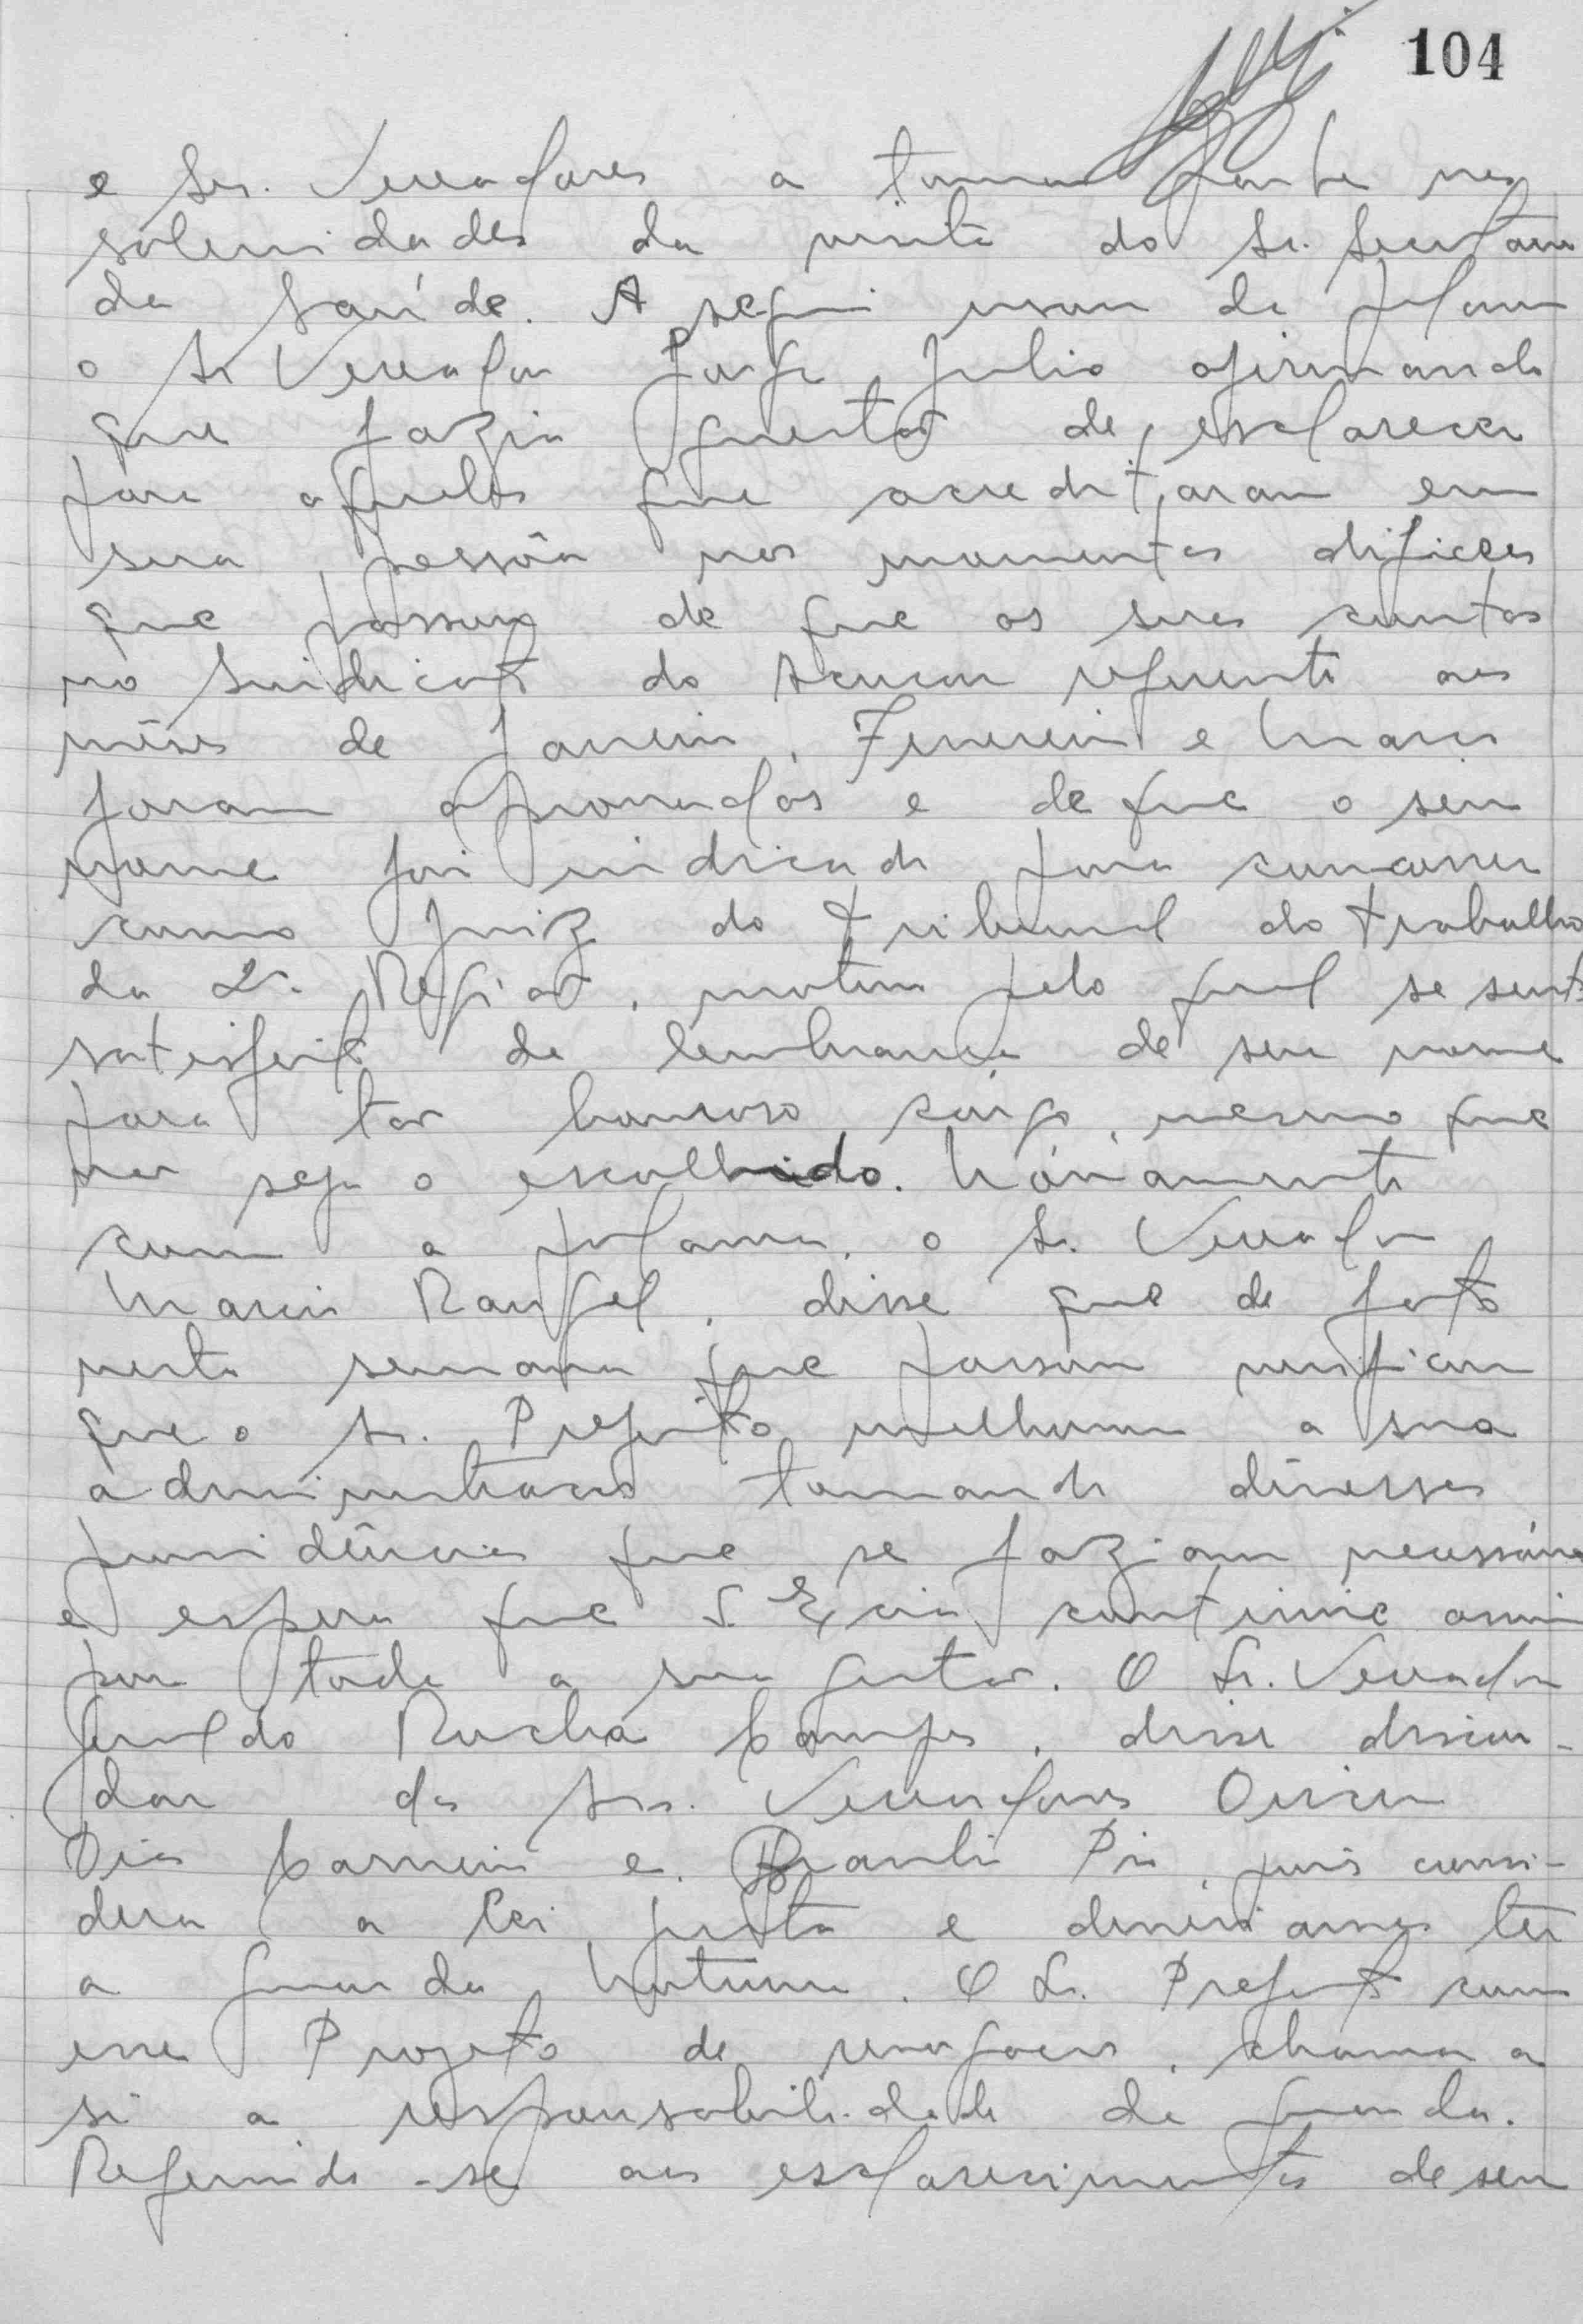 104
e Srs. Vereadores a tomar parte nas
solenidades da visita do Sr. Secretario
da Saúde. A seguir usou da palavra
o Sr Vereador Jorge Julio afirmando
que fazia questão de esclarecer
para aqueles que acreditaram em
sua pessôa nos momentos dificeis
que passou de que as suas contas
no Sindicato do Açucar referente aos
mêses de Janeiro, Fevereiro e Março
foram aprovadas e de que o seu
nome foi indicado para concorrer
como Juiz do Tribunal do Trabalho
da 2ª Região, motivo pelo qual se sente
satisfeito da lembrança de seu nome
para tão honroso cargo, mesmo que
não seja o escolhido. Novamente
com a palavra, o Sr. Vereador
Marcio Rangel, disse que de fato
nesta semana que passou verificou
que o Sr. Prefeito melhorou a sua
administração tomando diversas
providências que se faziam necessárias
e espera que S. Excia continue assim
por toda a sua gestão. O Sr. Vereador
Geraldo Rocha Campos, disse discor-
dar dos Srs. Vereadores
Dias Carneiro e, pois consi-
dera a lei justa e deveriamos ter
a guarda Noturna. O Sr. Prefeito com
esse Projeto de revogação, chama a
si a responsabilidade da guarda.
Referindo-se aos esclarecimentos de seu